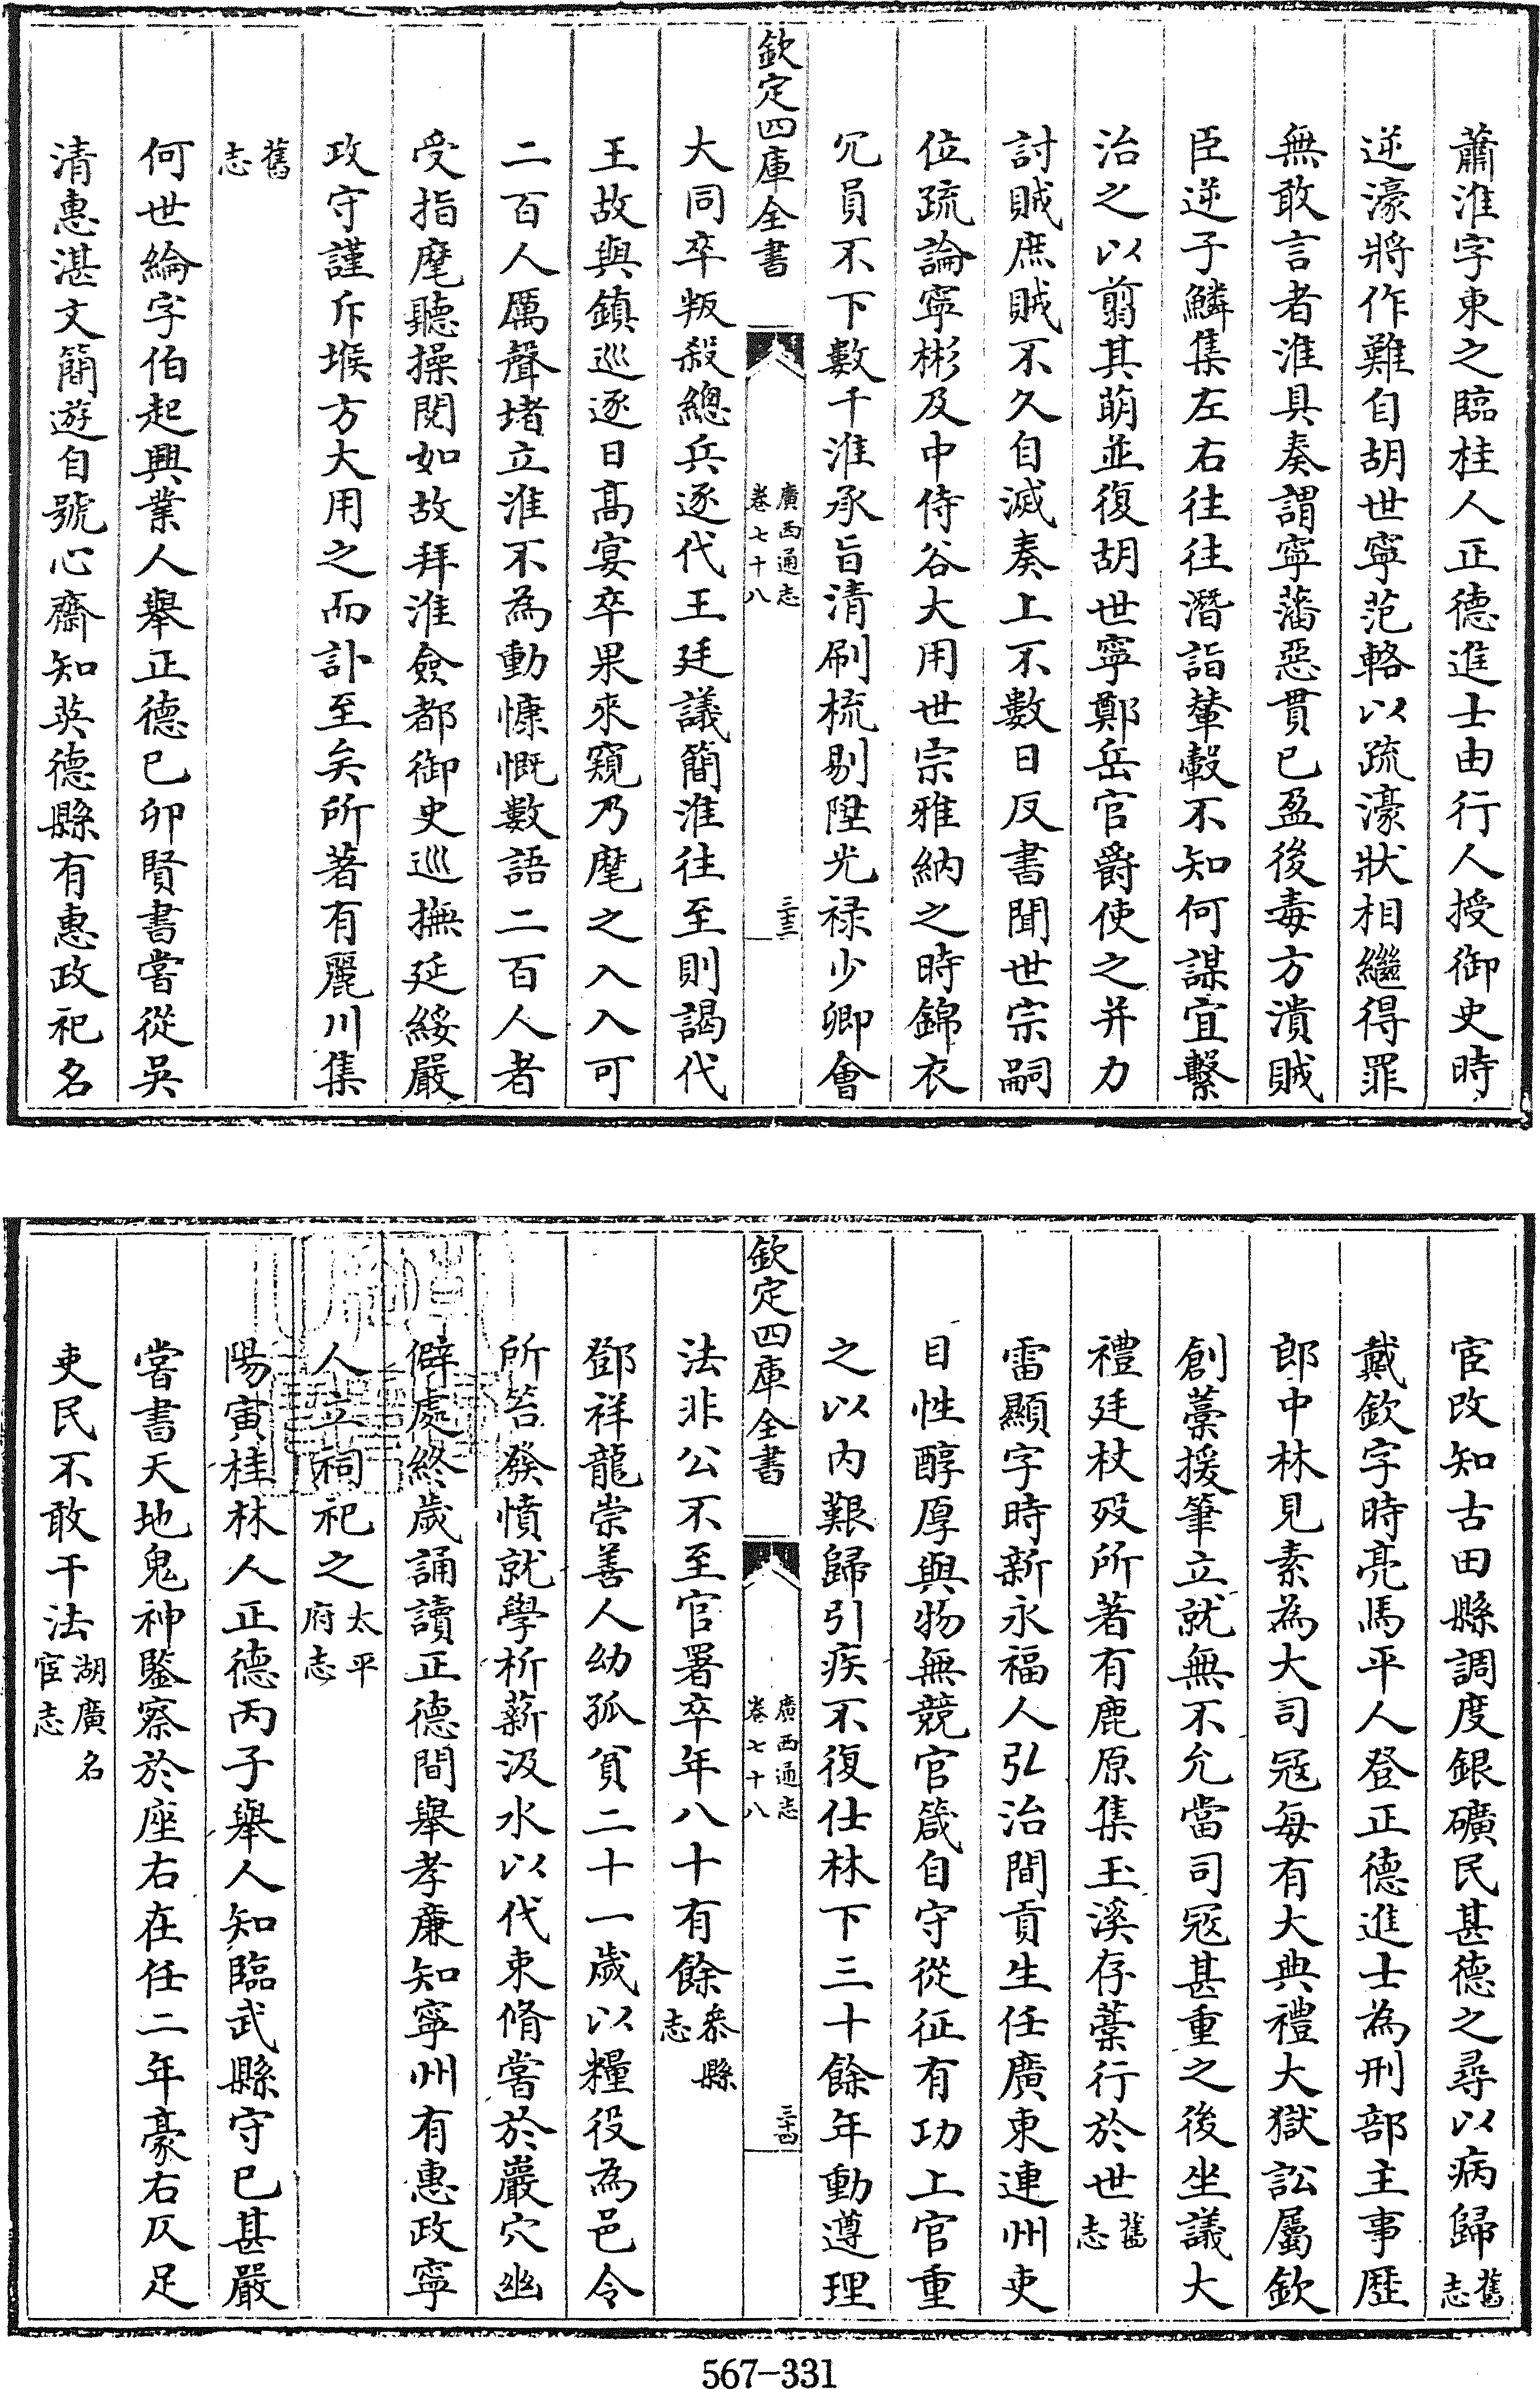 蕭淮字東之臨桂人正德進士由行人授御史時
逆濠將作難自胡世寧范輅以疏濠狀相繼得罪
無敢言者淮具奏謂寧藩惡貫已盈後毒方潰賊
臣逆子鱗集左右往往潛詣輦轂不知何謀宜繫
治之以翦其萌並復胡世寧鄭岳官爵使之并力
討賊庶賊不久自滅奏上不數日反書聞世宗嗣
位疏論寧彬及中侍谷大用世宗雅納之時錦衣
冗員不下數千淮承旨清刷梳剔陞光祿少卿會
欽定四庫全書
廣西通志
卷七十八
三十三
大同卒叛殺總兵逐代王廷議簡淮往至則謁代
王故與鎮巡逐日高宴卒果來窺乃麾之入入可
二百人厲聲堵立淮不為動慷慨數語二百人者
受指麾聽操閱如故拜淮僉都御史巡撫延綏嚴
攻守謹斥堠方大用之而訃至矣所著有麗川集
舊
志
何世綸字伯起興業人舉正德已卯賢書嘗從吳
清惠湛文簡遊自號心齋知英德縣有惠政祀名
宦改知古田縣調度銀礦民甚德之尋以病歸舊
志
戴欽字時亮馬平人登正德進士為刑部主事歷
郎中林見素為大司冦每有大典禮大獄訟屬欽
創藁援筆立就無不允當司冦甚重之後坐議大
禮廷杖歿所著有鹿原集玉溪存藁行於世舊
志
雷顯字時新永福人弘治間貢生任廣東連州吏
目性醇厚與物無競官箴自守從征有功上官重
之以内艱歸引疾不復仕林下三十餘年動遵理
欽定四庫全書
廣西通志
卷七十八
三十四
法非公不至官署卒年八十有餘叅縣
志
鄧祥龍崇善人幼孤貧二十一歲以糧役為邑令
所笞發憤就學析薪汲水以代束脩嘗於巖穴幽
僻處終歲誦讀正德間舉孝廉知寧州有惠政寧
人立祠祀之太平
府志
陽寅桂林人正德丙子舉人知臨武縣守已甚嚴
嘗書天地鬼神鑒察於座右在任二年豪右仄足
吏民不敢干法湖廣名
宦志
567-331